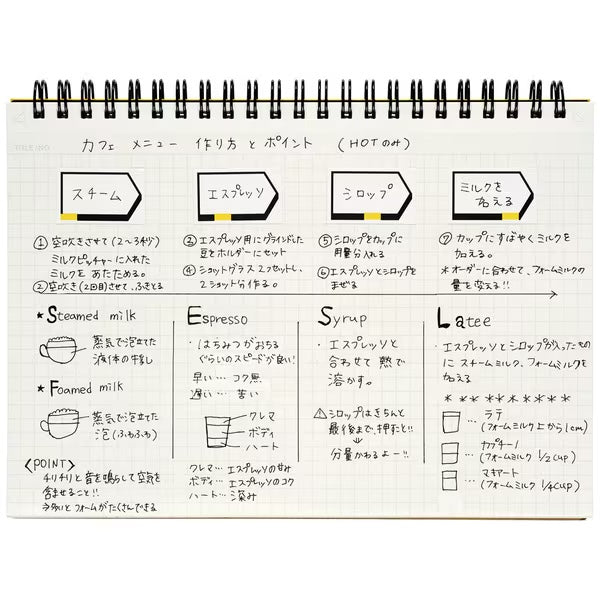 TITLE AND
カフェ メニュー 作り方とポイント (HOTのみ)
スチーム
エスプレッソ
シロップ
ミルクを
加える
① 空吹きさせて(2〜3秒)
ミルクピッチャーに入れた
ミルクをあたためる。
② 空吹き(2回目)させて、ふきとる
③ エスプレッソ用にグラインドした
豆をホルダーにセット
④ ショットグラス2つセットし、
2ショット分作る。
⑤ シロップをカップに
用量分入れる
⑥ エスプレッソとシロップを
まぜる
⑦ カップにすばやくミルクを
加える。
*オーダーに合わせて、フォームミルクの
量を変える!!
★Steamed milk
蒸気で泡立てた
液体の牛乳
★Foamed milk
蒸気で泡立てた
泡(ふわふわ)
〈POINT〉
チリチリと音を鳴らして空気を
含ませること!!
⇒多いとフォームがたくさんできる
Espresso
・はちみつがおちる
ぐらいのスピードが良い!
早い… コク無
遅い… 苦い
クレマ
ボディ
ハート
クレマ…エスプレッソの甘み
ボディ…エスプレッソのコク
ハート…深み
Syrup
・エスプレッソと
合わせて熱で
溶かす。
⚠シロップはきちんと
最後まで、押すこと!!
分量かわるよー!!
Latee
・エスプレッソとシロップが入ったもの
にスチームミルク、フォームミルクを
加える
* * * * * * * * *
… ラテ
(フォームミルク上から1cm)
… カプチーノ
(フォームミルク 1/2cup)
… マキアート
(フォームミルク 1/4cup)